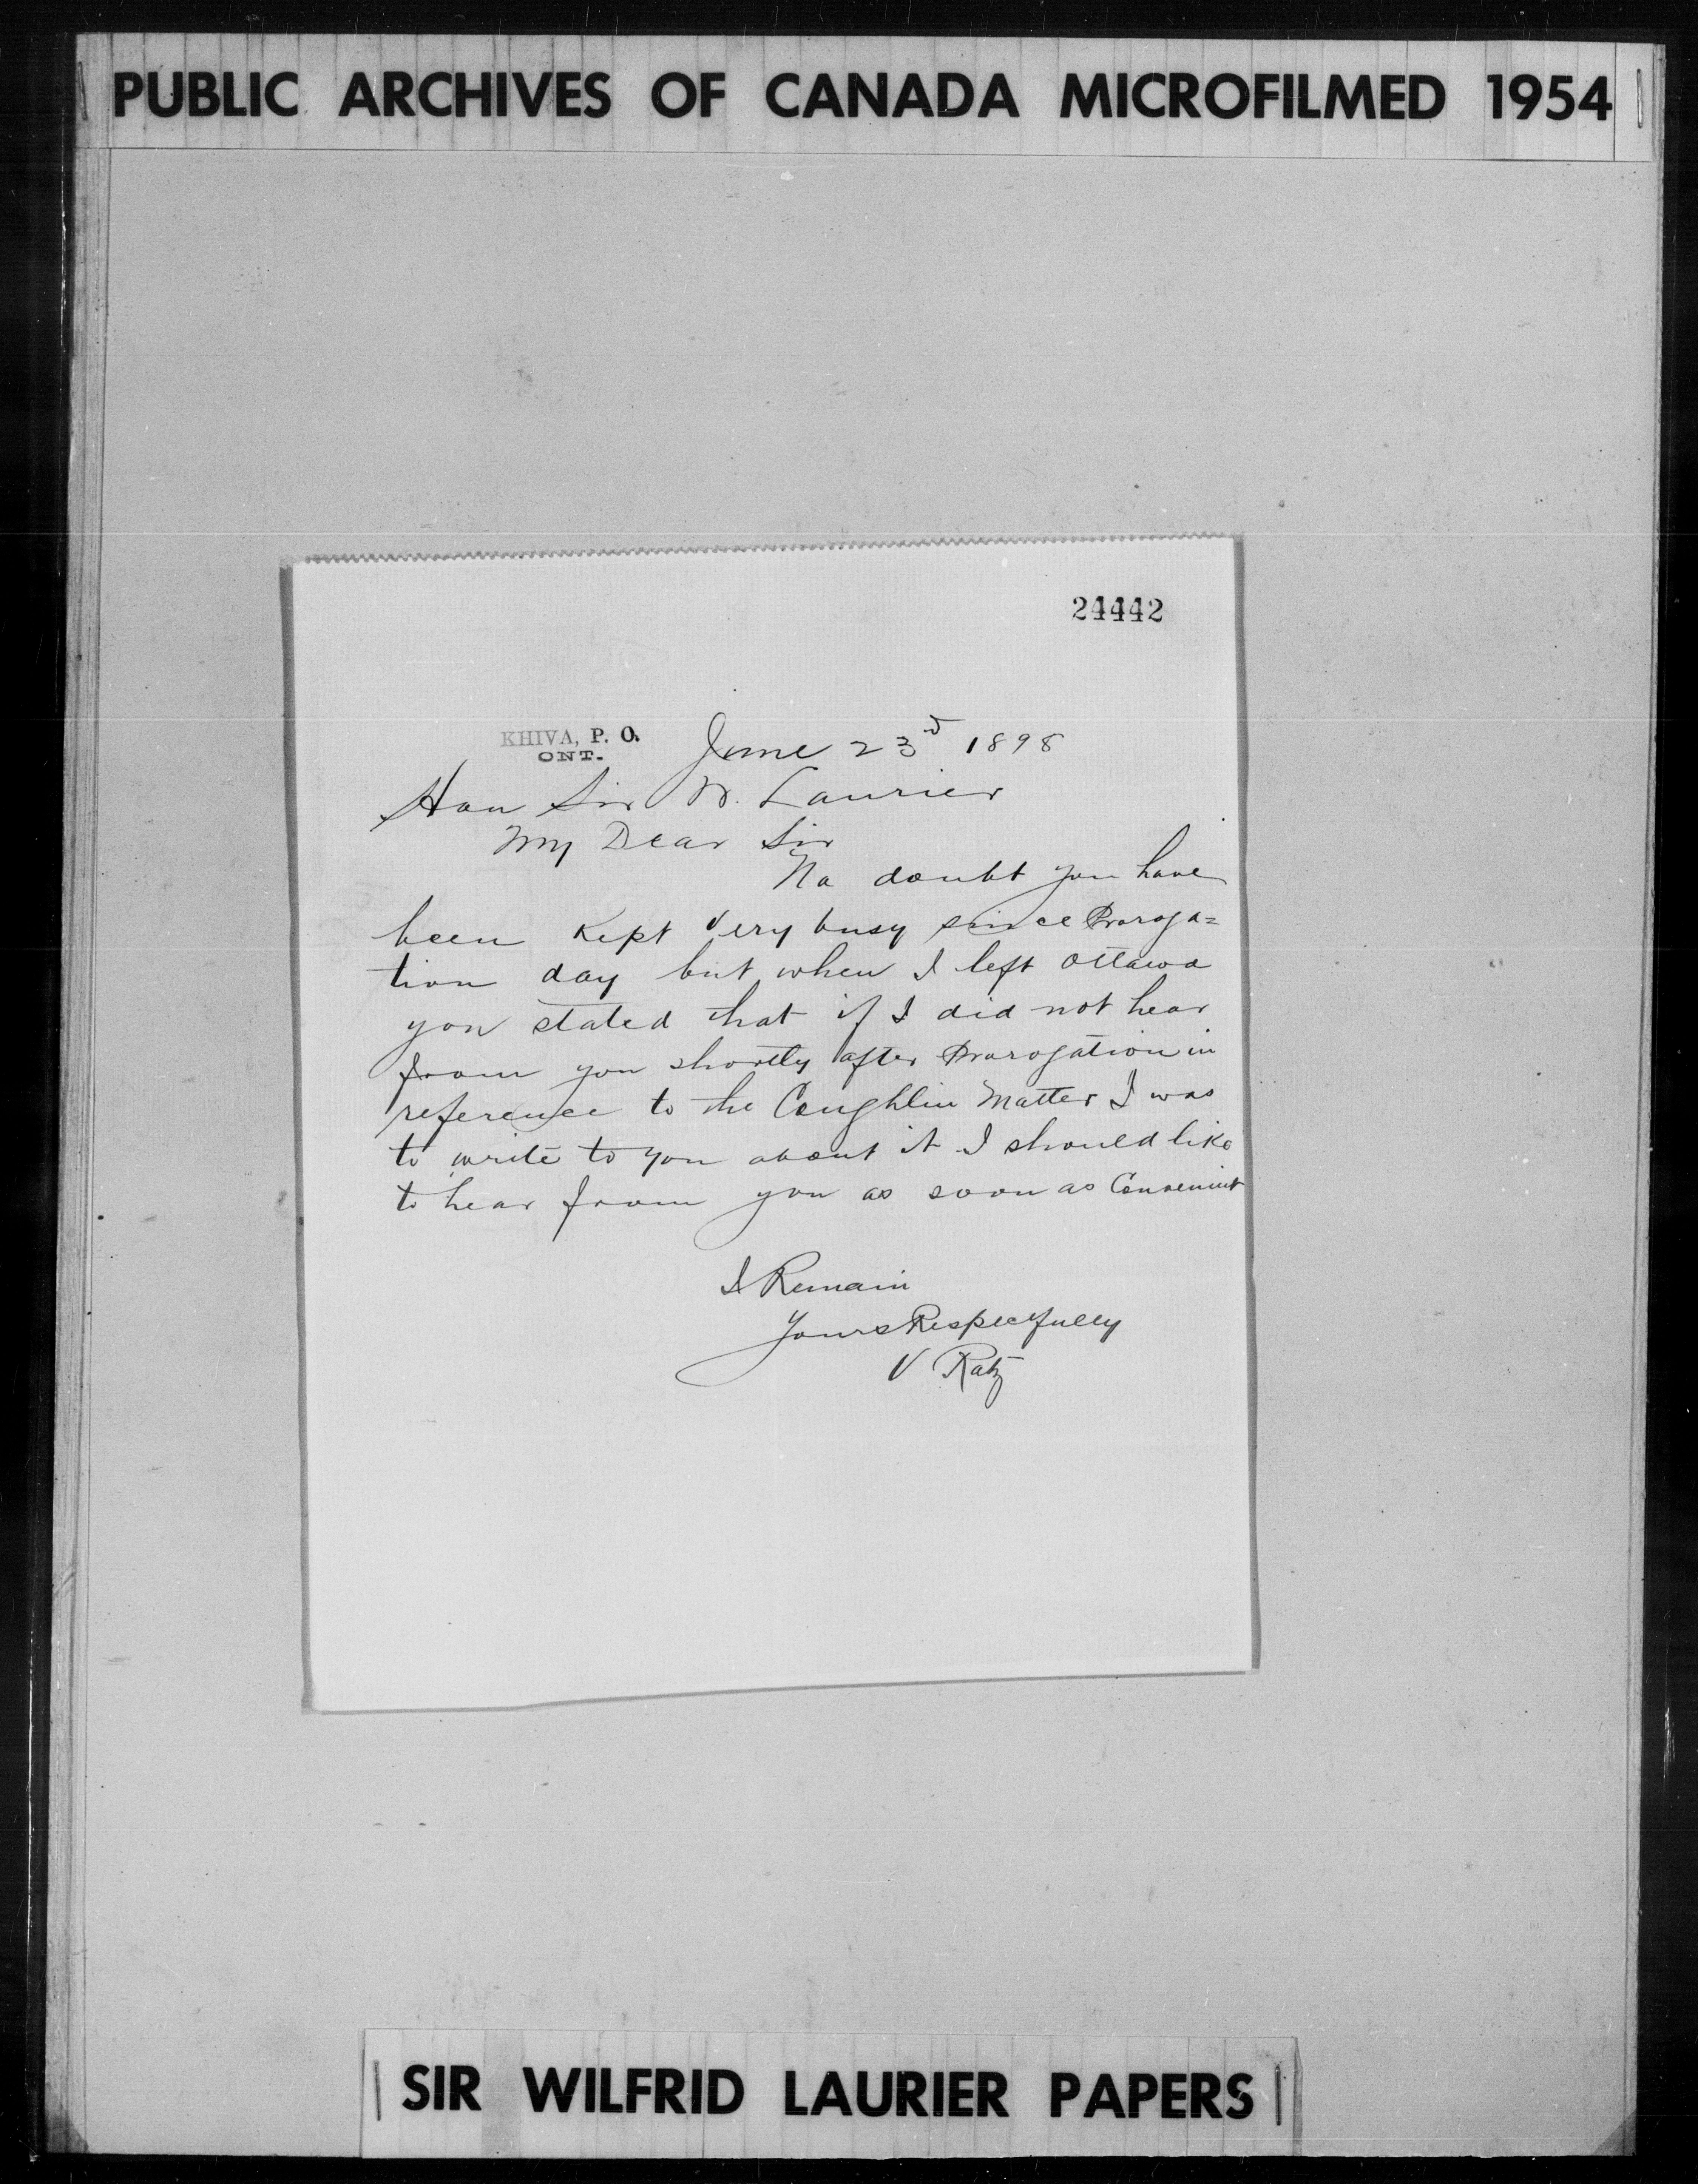 PUBLIC ARCHIVES OF CANADA MICROFILMED 1954
24442
KHIVA, P. O.
ONT.
June 23d 1898
Hon Sir W. Laurier
My Dear Sir
No doubt you have
been kept very busy since Proroga=
tion day but when I left Ottawa
you stated that if I did not hear
from you shortly after Prorogation in
reference to the Coughlin Matter I was
to write to you about it I should like
to hear from you as soon as Convenient
I Remain
Yours Respectfully
V Ratz
SIR WILFRID LAURIER PAPERS